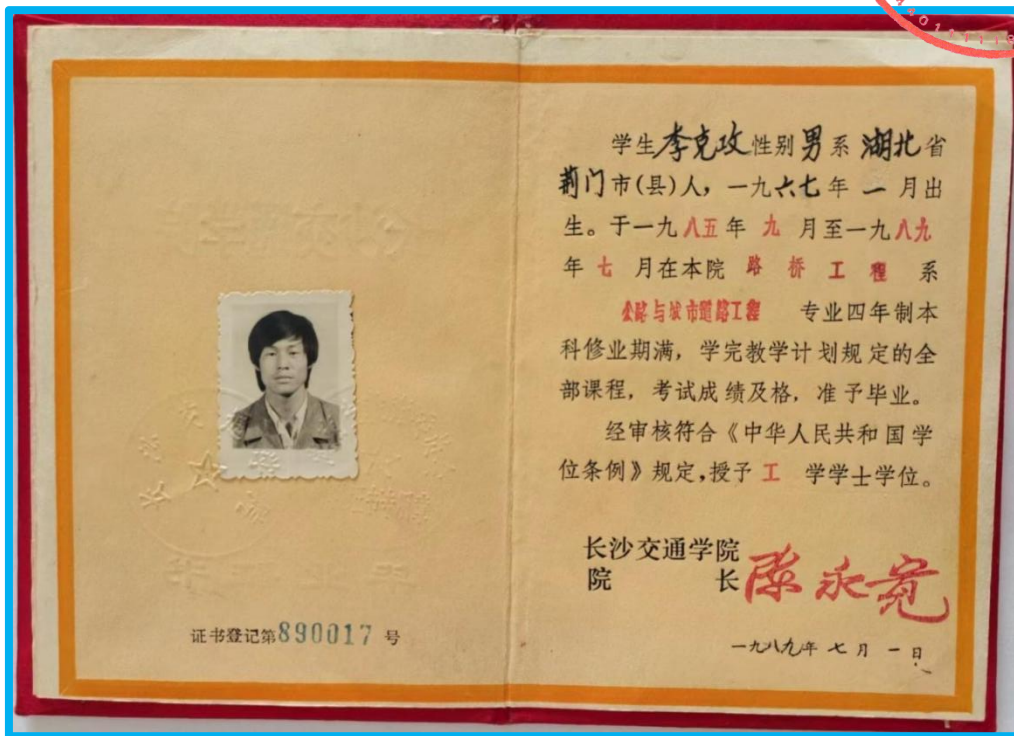 学生李克攻性别男系湖北省
荆门市(县)人，一九六七年一月出
生。于一九八五年九月至一九八九
年七月在本院路桥工程系
公路与城市道路工程专业四年制本
科修业期满，学完教学计划规定的全
部课程，考试成绩及格，准予毕业。
经审核符合《中华人民共和国学
位条例》规定，授予工学学士学位。
长沙交通学院
院长陈永宽
一九八九年七月一日
证书登记第890017号